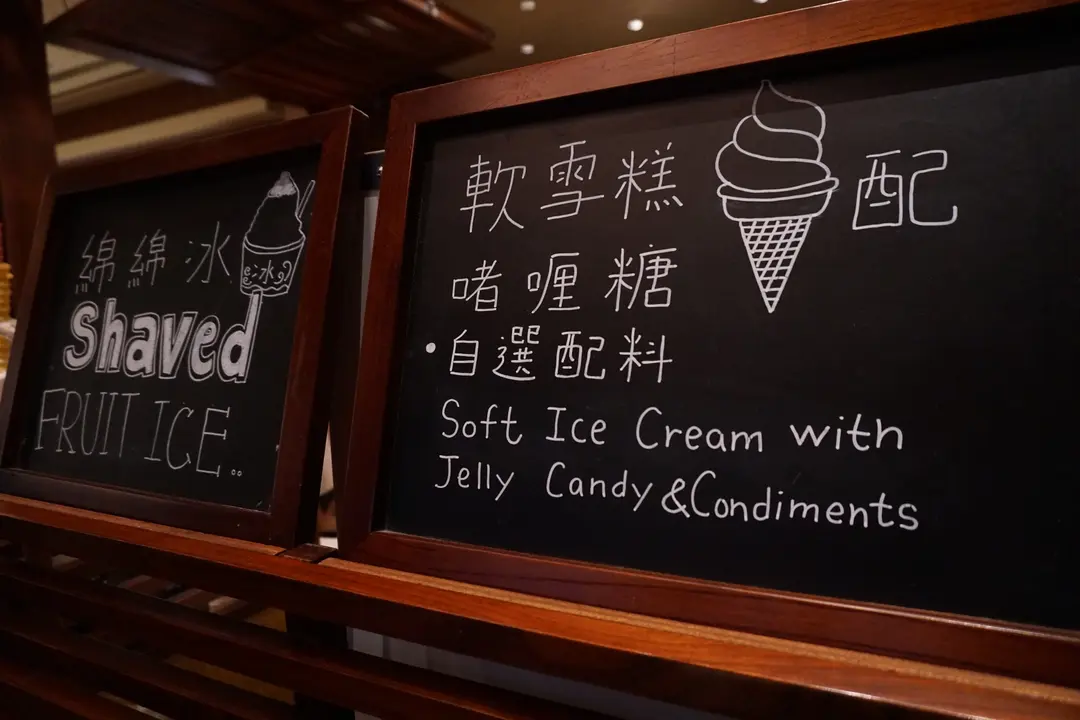 綿綿冰
冰
Shaved
FRUIT ICE..
軟雪糕 配
啫喱糖
•自選配料
Soft Ice Cream with
Jelly Candy &Condiments